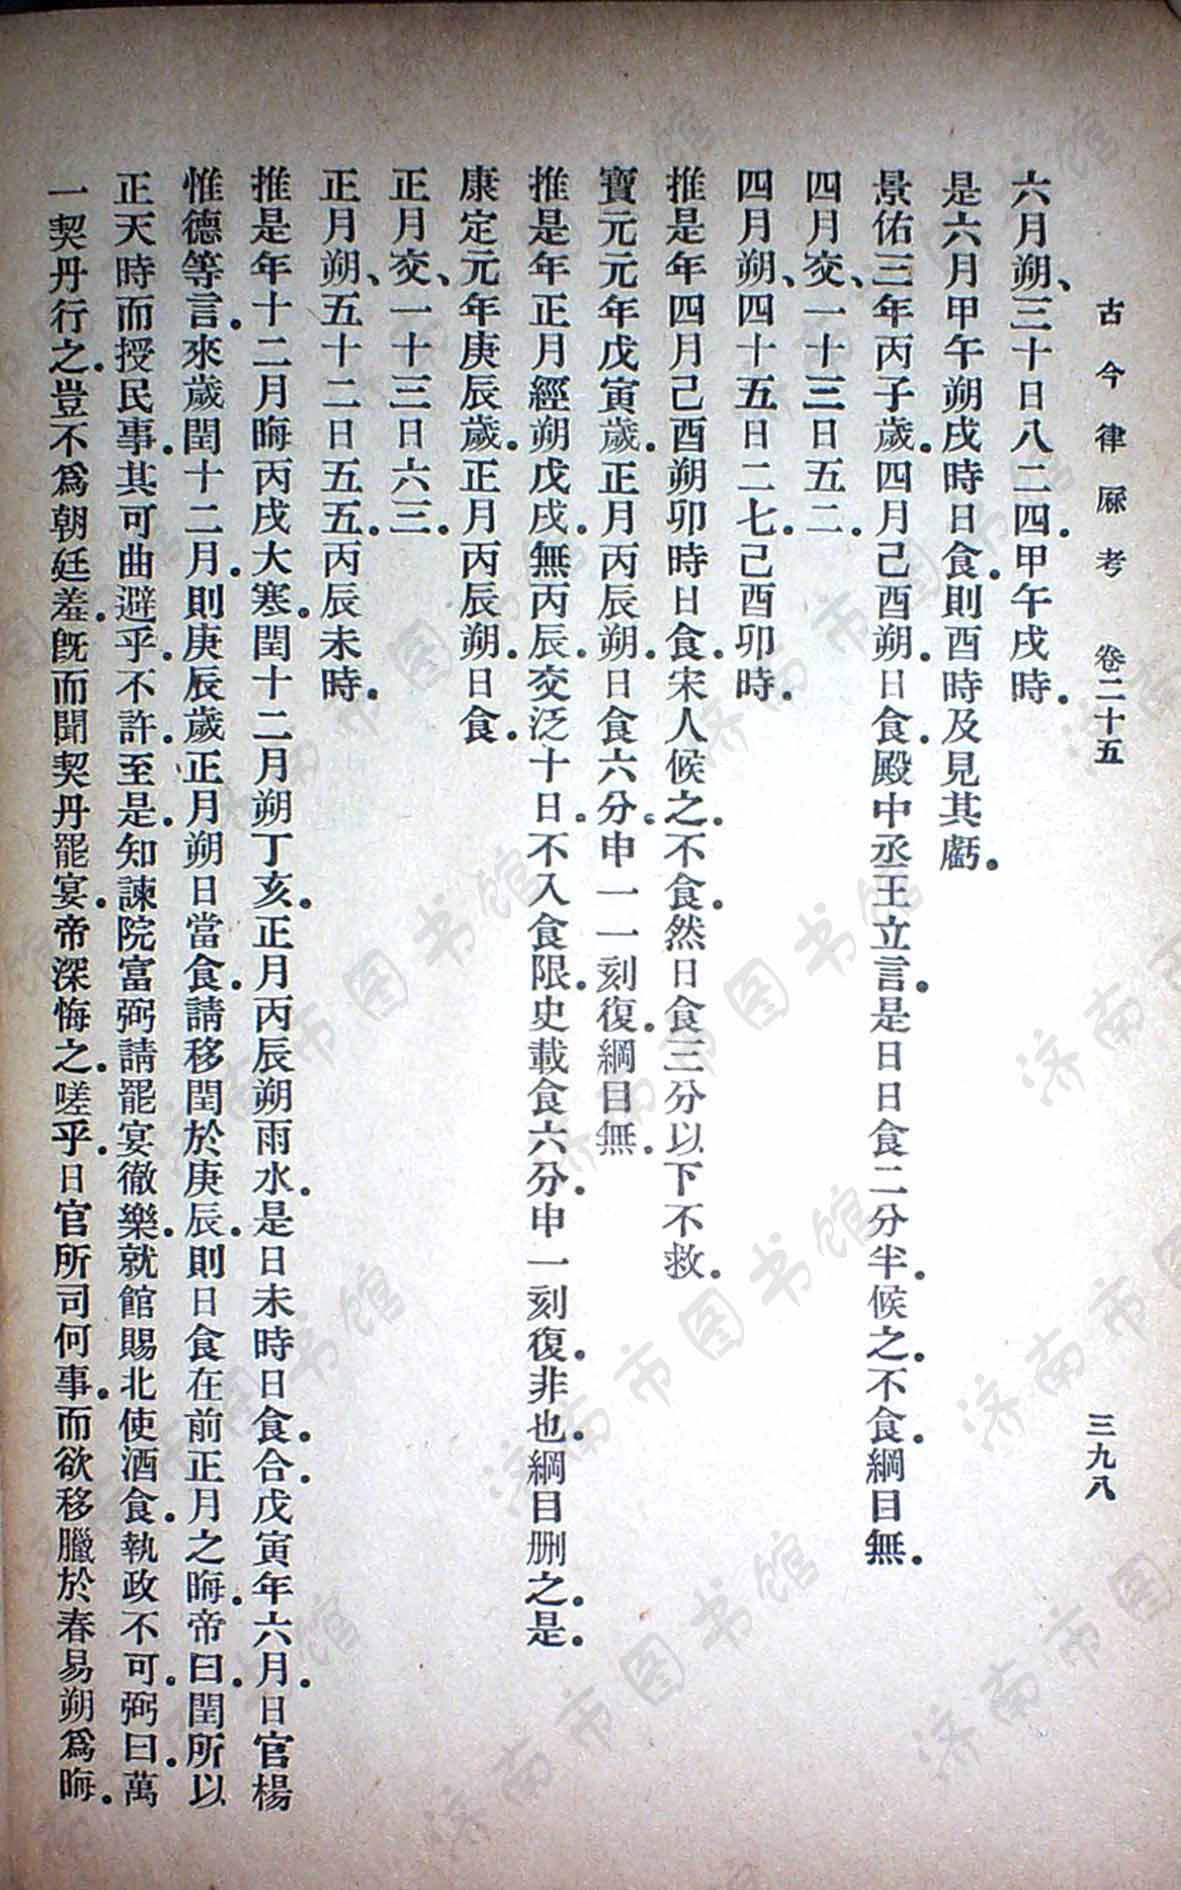 古今律厤考 卷二十五 三九八
六月朔、三十日八二四。甲午戌時。
是六月甲午朔戌時日食。則酉時及見其虧。
景佑三年丙子歲。四月己酉朔。日食。殿中丞王立言。是日日食二分半。候之。不食。綱目無。
四月交、一十三日五二。
四月朔、四十五日二七。己酉卯時。
推是年四月己酉朔卯時日食。宋人候之。不食。然日食三分以下不救。
寶元元年戊寅歲。正月丙辰朔。日食六分。申一一刻復。綱目無。
推是年正月經朔戊戌。無丙辰。交泛十日。不入食限。史載食六分。申一刻復。非也。綱目刪之。是。
康定元年庚辰歲。正月丙辰朔。日食。
正月交、一十三日六三。
正月朔、五十二日五五。丙辰未時。
推是年十二月晦丙戌大寒。閏十二月朔丁亥。正月丙辰朔雨水。是日未時日食。合。戊寅年六月。日官楊
惟德等言。來歲閏十二月。則庚辰歲正月朔日當食。請移閏於庚辰。則日食在前正月之晦。帝曰。閏所以
正天時而授民事。其可曲避乎。不許。至是。知諫院富弼請罷宴徹樂。就館賜北使酒食。執政不可。弼曰。萬
一契丹行之。豈不為朝廷羞。旣而聞契丹罷宴。帝深悔之。嗟乎。日官所司何事。而欲移臘於春易朔為晦。
济南市图书馆